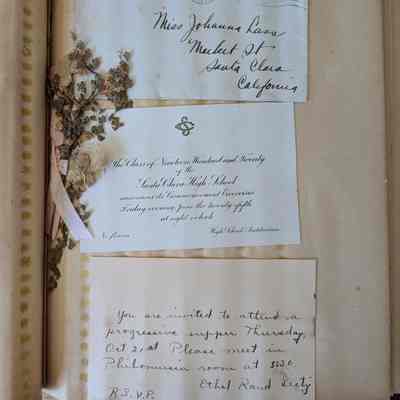 Miss Johanna
Market St
Santa Clara
California
The Class of Nineteen Hundred and Twenty
of the
Santa Clara High School
announces its Commencement Exercises
Friday evening, June the twenty-fifth
at eight o'clock
No flowers
High School Auditorium
You are invited to attend a
progressive supper Thursday,
Oct 21st Please meet in
Philomusia room at 5:30
Ethel Rand
R.S.V.P.